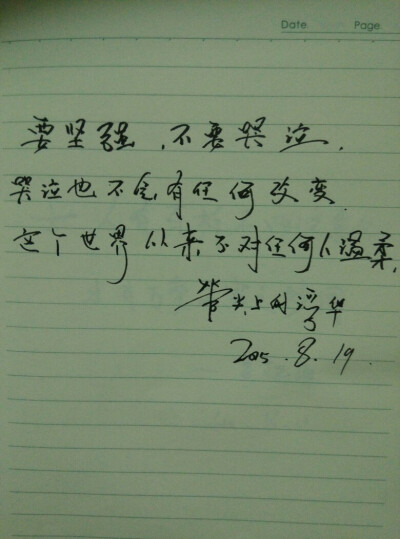 Date Page
要坚强,不要哭泣,
哭泣也不会有任何改变.
这个世界从来不对任何人温柔,
尖上的浮华
2015.8.19.